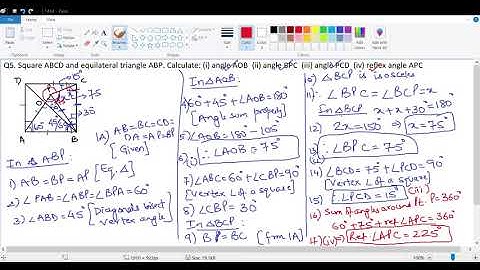 Q5. Square ABCD and equilateral triangle ABP. Calculate: (i) angle AOB (ii) angle BPC (iii) angle PCD (iv) reflex angle APC
D
C
75
30°
60°
45°
A
B
1A) AB=BC=CD=
DA=AP=BP
[Given]
In △ ABP:
1) AB=BP=AP [Eq. △]
2) ∠PAB=∠ABP=∠BPA=60°
3) ∠ABD=45° [Diagonals bisect
vertex angle]
In △AOB:
4) 60°+45°+∠AOB=180°
[Angle sum property]
5) ∠AOB=180°-105°
6) (i) ∴ ∠AOB=75°
7) ∠ABC=60°+∠CBP=90°
[Vertex ∠ of a square]
8) ∠CBP=30°
In △BCP:
9) BP=BC [frm 1A]
10) △BCP is isosceles
11) ∴ ∠BPC=∠BCP=x
In △BCP x+x+30=180°
12) 2x=150° ∴ x=75°
13) ∴ ∠BPC=75°
14) ∠BCD=75°+∠PCD=90°
[Vertex ∠ of a square]
15) ∴ ∠PCD=15° (iii)
16) Sum of angles around pt. P=360°
60°+75°+ref∠APC=360°
17) (iv) ⇒ Ref.∠APC=225°